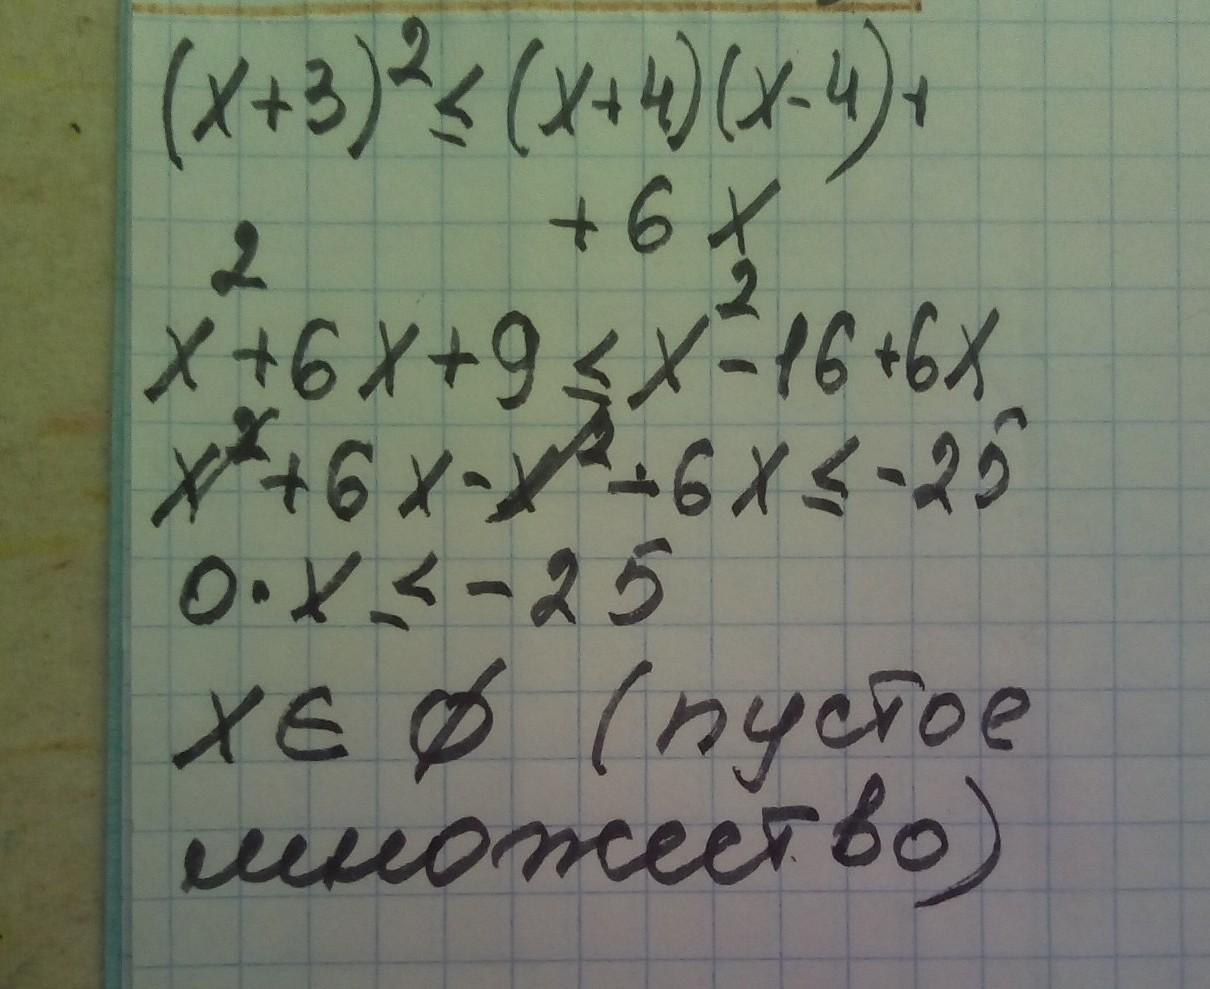 (x+3)² ≤ (x+4)(x-4)+
+6x
x²+6x+9 ≤ x²-16+6x
x²+6x-x²-6x ≤ -25
0·x ≤ -25
x ∈ ∅ (пустое
множество)